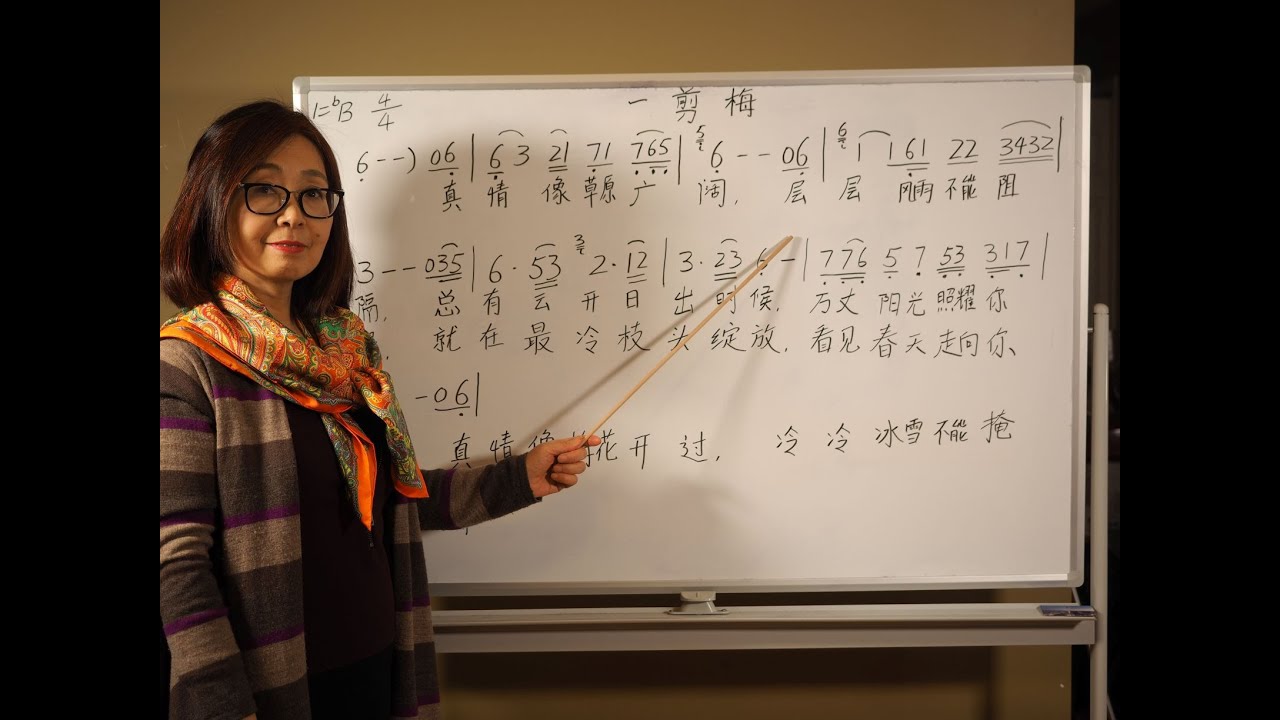 1=ᵇB 4/4 一剪梅
6 - - ) 06 | 63 21 71 765 | 5 6 - - 06 | 6 1 161 22 3432 |
真 情 像 草原 广 阔, 层 层 风雨 不能 阻
3 - - 035 | 6· 53 3 2· 12 | 3· 23 6 - | 776 5 7 53 317 |
隔, 总 有 云 开 日 出 时 候, 万丈 阳光 照耀 你
, 就 在 最 冷 枝 头 绽 放, 看见 春天 走向 你
- 06 |
真 情 像 花 开 过, 冷 冷 冰雪 不能 掩